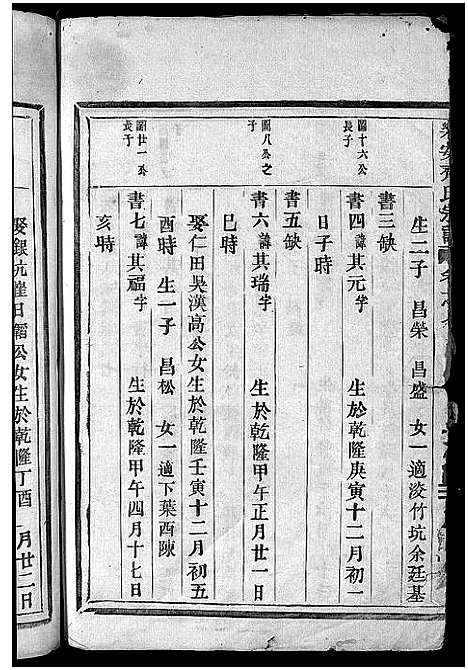 生二子 昌榮 昌盛 女一適淩竹坑余廷基
書三缺
圖十六公
長子
書四諱其元字 生於乾隆庚寅十二月初一
日子時
書五缺
圖八公之
子
書六諱其瑞字 生於乾隆甲午正月廿一日
巳時
娶仁田吳漢高公女生於乾隆壬寅十二月初五
酉時 生一子 昌松 女一適下葉酉陳
圖廿一公
長子
書七諱其福字 生於乾隆甲午四月十七日
亥時
公女生於乾隆丁酉 月廿二日